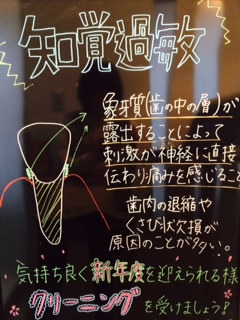 知覚過敏
象牙質(歯の中の層)が
露出することによって
刺激が神経に直接
伝わり痛みを感じること
歯肉の退縮や
くさび状欠損が
原因のことが多い。
気持ち良く新年度を迎えられる様
クリーニングを受けましょう!